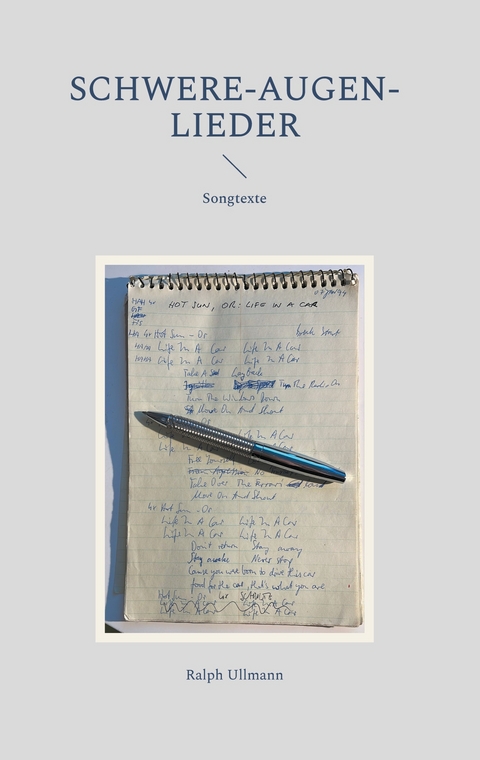 SCHWERE-AUGEN-
LIEDER
Songtexte
HOT SUN, OR: LIFE IN A CAR
Hot Sun - Or
Life In A Car Life In A Car
Life In A Car Life In A Car
Take A Lay Back
The Radio On
Turn The Windows Down
Move On And Shout
Life In A Car
Life
No
Take Over The Ferrari
Move On And Shout
4x Hot Sun - Or
Life In A Car Life In A Car
Life In A Car Life In A Car
Don't return Stay away
Stay awake Never stop
Cause you were born to drive this car
food for the cat, that's what you are
Hot Sun - Or
Life In A Car Life In A Car
Ralph Ullmann